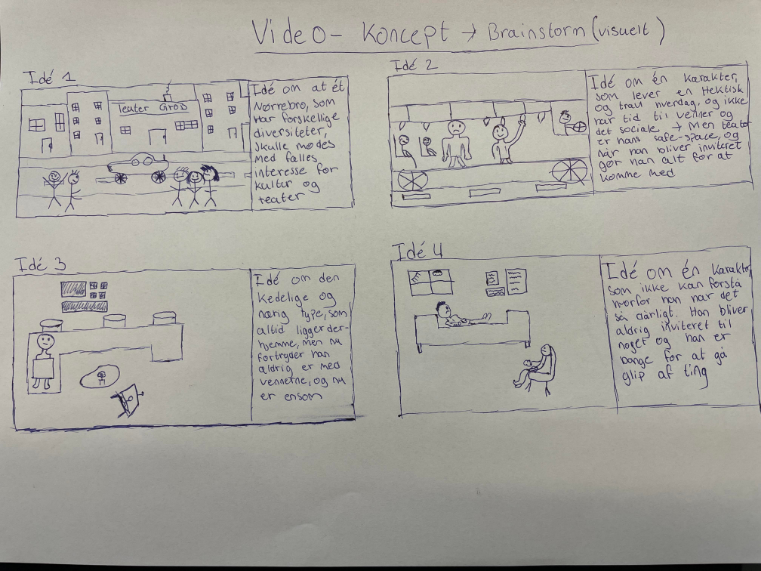 Video- Koncept → Brainstorm (visuelt)
Idé 1
Teater Grob
Idé om at ét
Nørrebro, som
har forskellige
diversiteter,
skulle mødes
med fælles
interesse for
kultur og
teater
Idé 2
Idé om én karakter,
som lever en hektisk
og travl hverdag, og ikke
har tid til venner og
det sociale → Men teater
er hans safe-space, og
når han bliver inviteret
gør han alt for at
komme med
Idé 3
Idé om den
kedelige og
nørig type, som
altid ligger der-
hjemme, men nu
fortryder han
aldrig er med
vennerne, og nu
er ensom
Idé 4
Idé om én karakter,
som ikke kan forstå
hvorfor han har det
så dårligt. Han bliver
aldrig inviteret til
noget og han er
bange for at gå
glip af ting